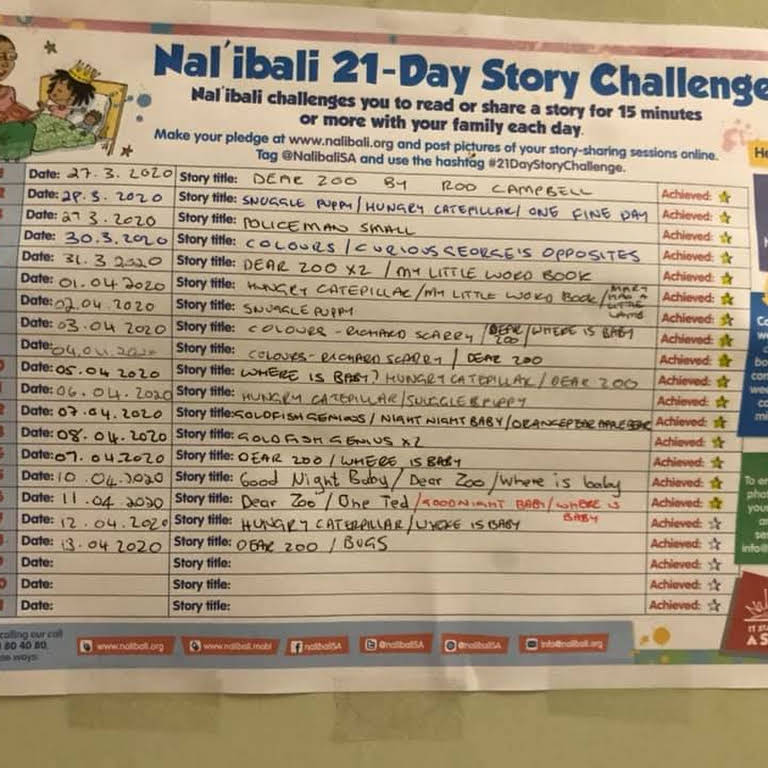 Nal'ibali 21-Day Story Challenge
Nal'ibali challenges you to read or share a story for 15 minutes
or more with your family each day.
Make your pledge at www.nalibali.org and post pictures of your story-sharing sessions online.
Tag @NalibaliSA and use the hashtag #21DayStoryChallenge.
Date: 27.3.2020 Story title: DEAR ZOO BY ROD CAMPBELL Achieved:
Date: 28.3.2020 Story title: SNUGGLE PUPPY/HUNGRY CATEPILLAR/ONE FINE DAY Achieved:
Date: 29 3.2020 Story title: POLICEMAN SMALL Achieved:
Date: 30.3.2020 Story title: COLOURS/CURIOUS GEORGE'S OPPOSITES Achieved:
Date: 31.3 2020 Story title: DEAR ZOO X2 /MY LITTLE WORD BOOK Achieved:
Date: 01.04 2020 Story title: HUNGRY CATEPILLAR/MY LITTLE WORD BOOK/MARY HAD A LITTLE LAMB Achieved:
Date: 02.04.2020 Story title: SNUGGLEPUPPY Achieved:
Date: 03.04 2020 Story title: COLOURS-RICHARD SCARRY/DEAR ZOO/WHERE IS BABY Achieved:
Date: 04.04.2020 Story title: COLOURS-RICHARD SCARRY/DEAR ZOO Achieved:
Date: 05.04 2020 Story title: WHERE IS BABY? HUNGRY CATEPILLAR/DEAR ZOO Achieved:
Date: 06.04.2020 Story title: HUNGRY CATEPILLAR/SNUGGLEPUPPY Achieved:
Date: 07.04.2020 Story title: GOLDFISH GENIOUS/NIGHT NIGHT BABY/ORANGE PEAR APPLE BEAR Achieved:
Date: 08.04.2020 Story title: GOLDFISH GENIUS X2 Achieved:
Date: 09.04.2020 Story title: DEAR ZOO/WHERE IS BABY Achieved:
Date: 10.04.2020 Story title: Good Night Baby/Dear Zoo/Where is baby Achieved:
Date: 11.04 2020 Story title: Dear Zoo/One Ted/GOODNIGHT BABY/WHERE IS BABY Achieved:
Date: 12.04.2020 Story title: HUNGRY CATERPILLAR/WHERE IS BABY Achieved:
Date: 13.04 2020 Story title: DEAR ZOO/BUGS Achieved:
Date: Story title: Achieved:
Date: Story title: Achieved:
Date: Story title: Achieved:
calling our call
80 40 80,
ways:
www.nalibali.org www.nalibali.mobi nalibaliSA @nalibaliSA @nalibaliSA info@nalibali.org